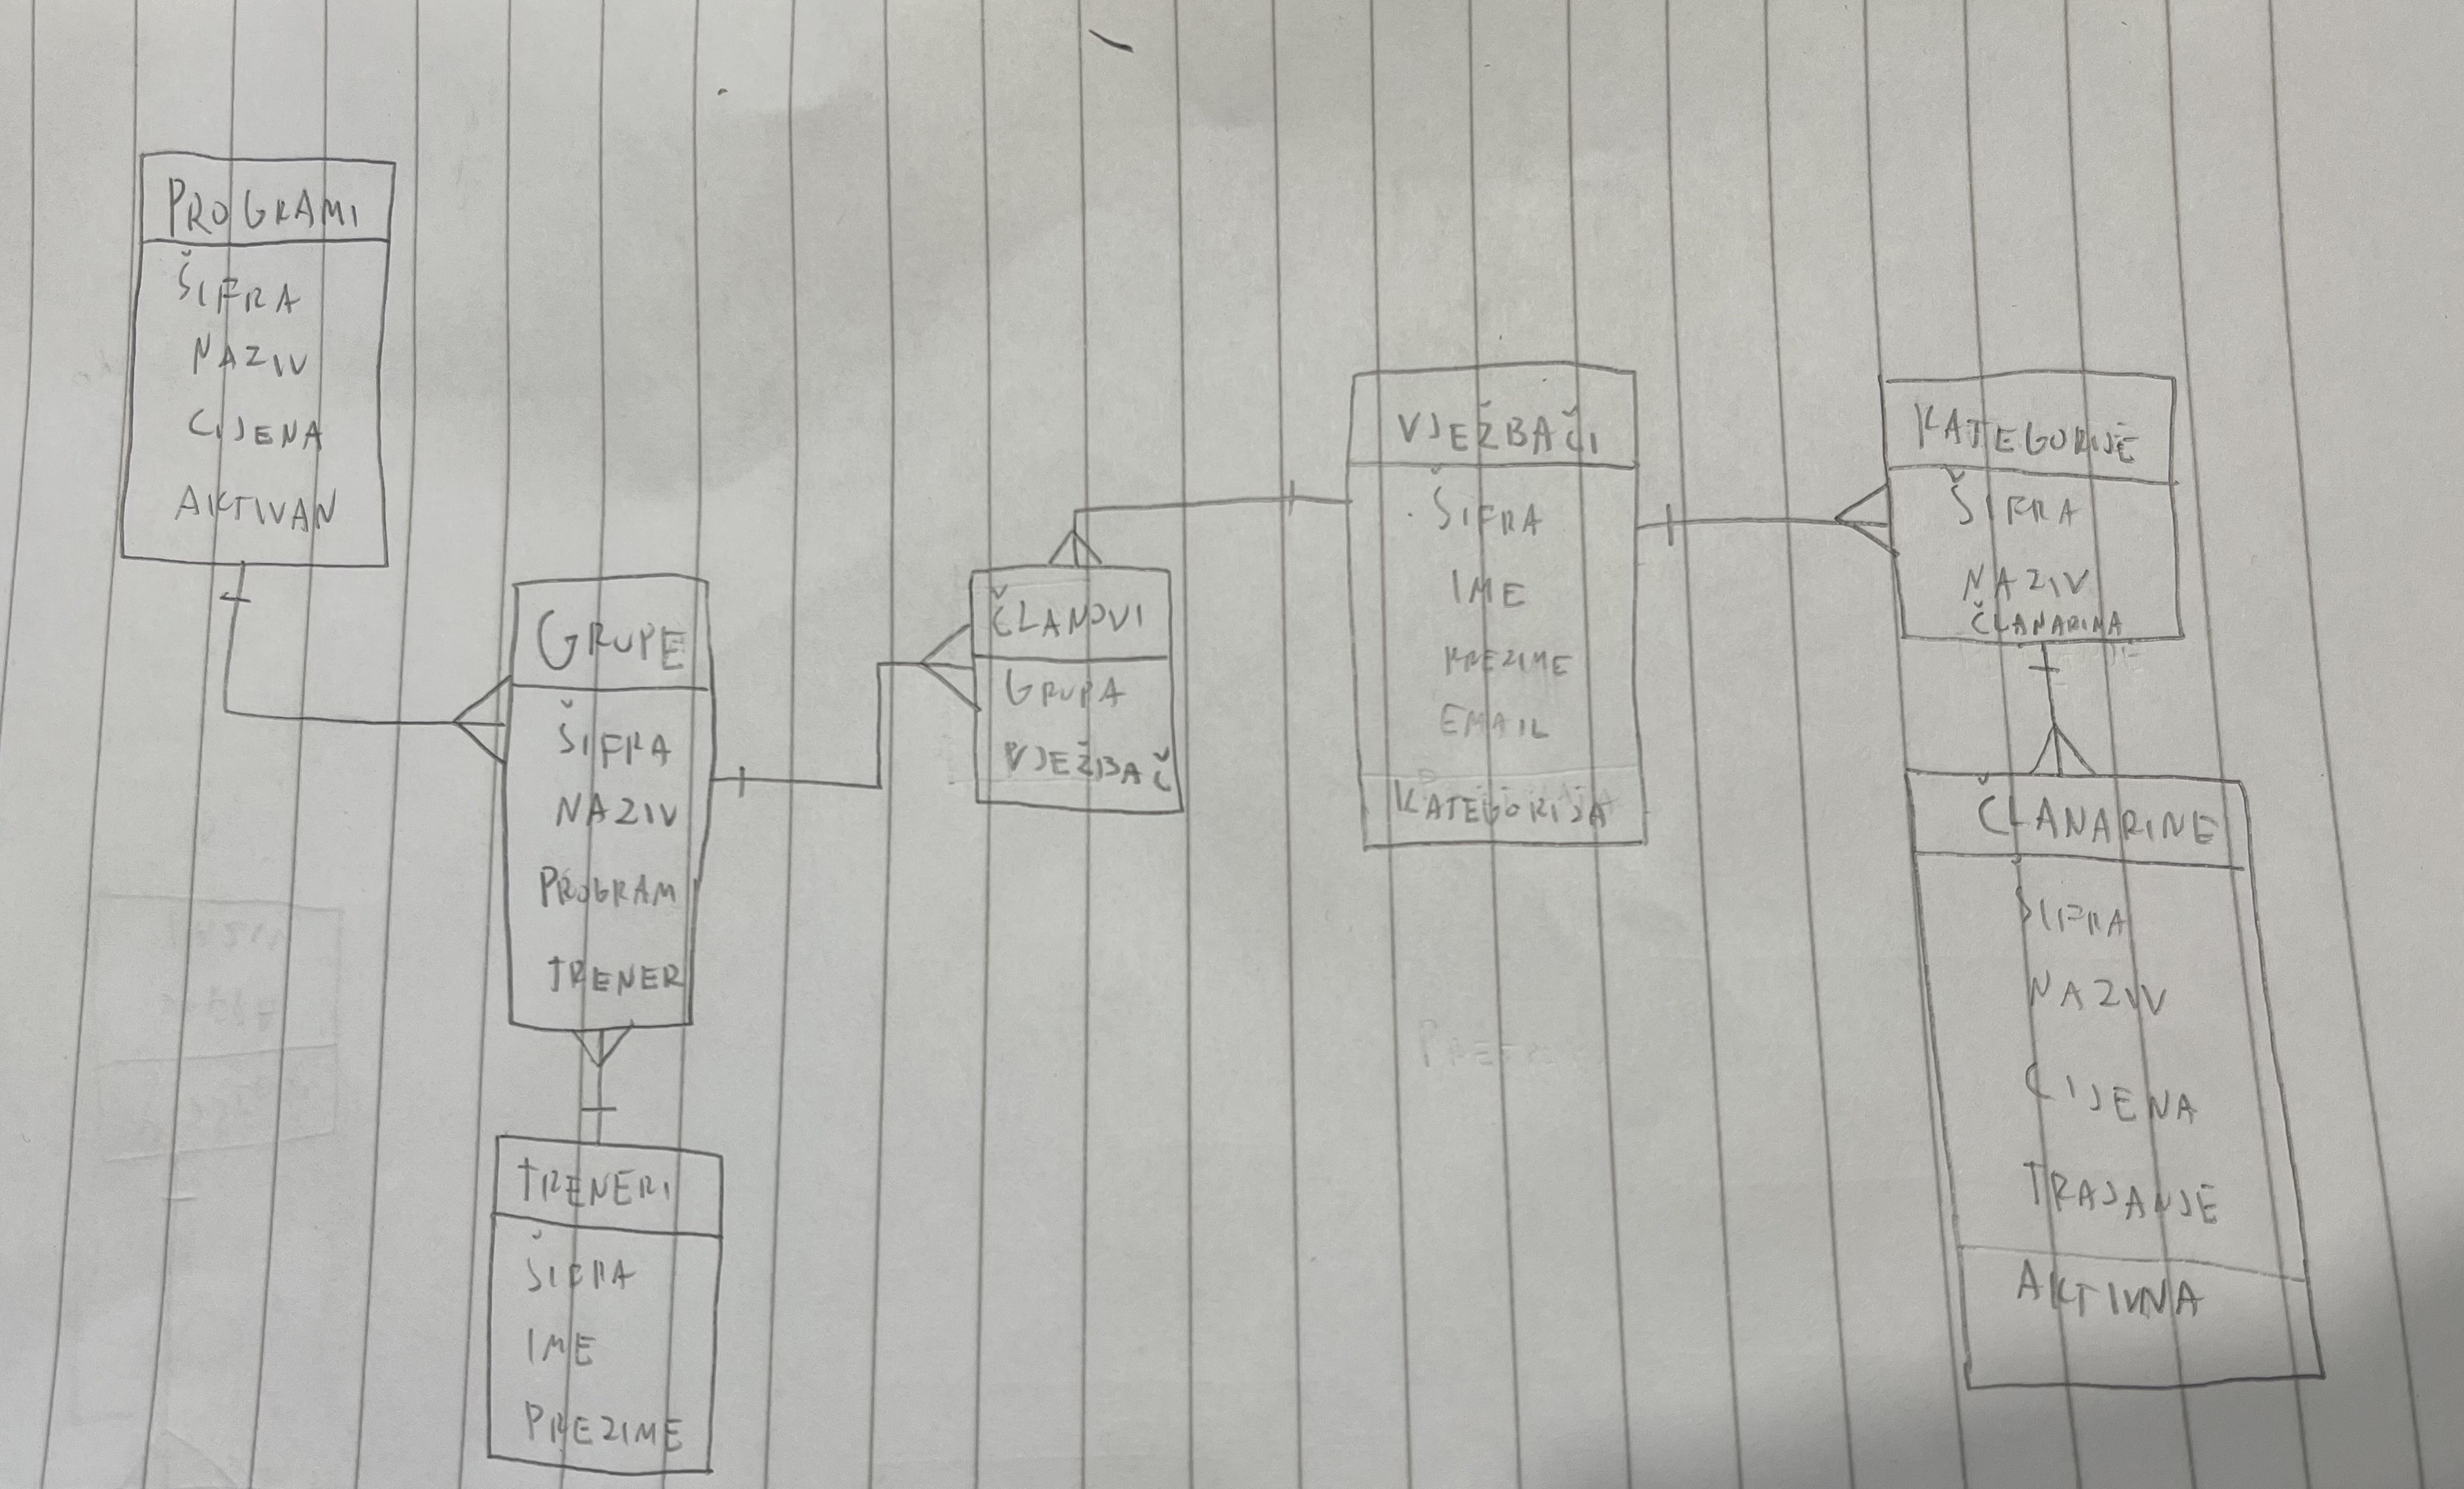 PROGRAMI
ŠIFRA
NAZIV
CIJENA
AKTIVAN
GRUPE
ŠIFRA
NAZIV
PROGRAM
TRENER
TRENERI
ŠIFRA
IME
PREZIME
ČLANOVI
GRUPA
VJEŽBAČ
VJEŽBAČI
ŠIFRA
IME
PREZIME
EMAIL
KATEGORIJA
KATEGORIJE
ŠIFRA
NAZIV
ČLANARINA
ČLANARINE
ŠIFRA
NAZIV
CIJENA
TRAJANJE
AKTIVNA